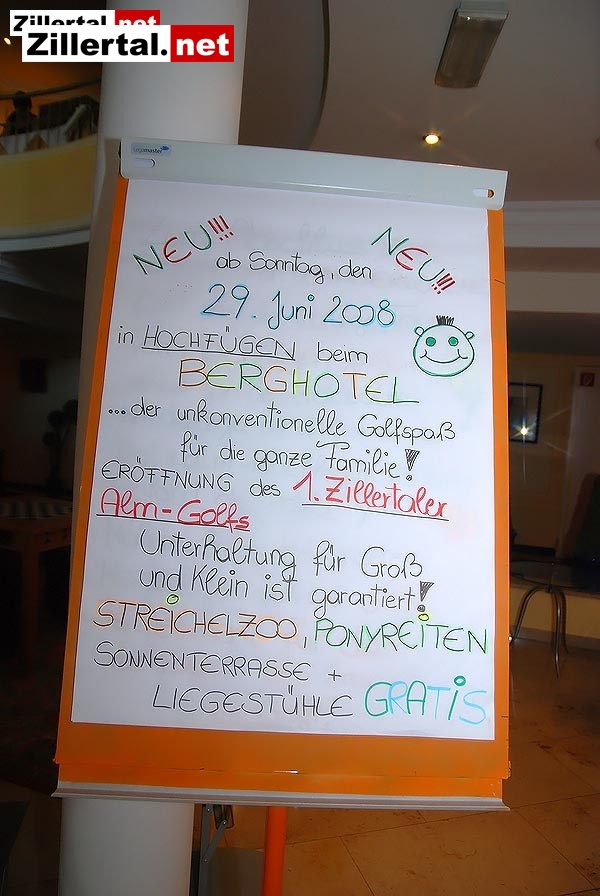 Zillertal.net
Zillertal.net
Legamaster
NEU!!! NEU!!!
ab Sonntag, den
29. Juni 2008
in HOCHFÜGEN beim
BERGHOTEL
...der unkonventionelle Golfspaß
für die ganze Familie!
ERÖFFNUNG des 1. Zillertaler
Alm-Golfs
Unterhaltung für Groß
und Klein ist garantiert!
STREICHELZOO, PONYREITEN
SONNENTERRASSE +
LIEGESTÜHLE GRATIS